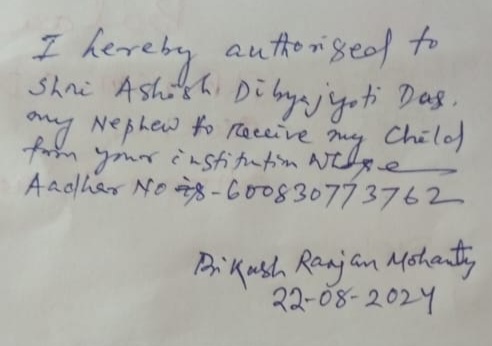 I hereby authorised to
Shri Ashish Dibyajyoti Das.
my Nephew to Receive my Child
from your institution Whose
Aadhar No is - 600830773762
Bikash Ranjan Mohanty
22-08-2024